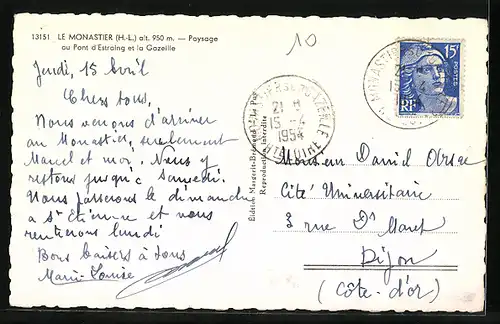 13151 LE MONASTIER (H.-L.) alt. 950 m. — Paysage
au Pont d'Estraing et la Gazeille
10
Jeudi, 15 Avril
Chers tous,
Nous venons d'arriver
au Monastier, seulement
Marcel et moi. Nous y
restons jusqu'à samedi.
Nous passerons le dimanche
à St Etienne et nous
rentrerons lundi
Bons baisers à tous
Marie-Louise
Edition Margerit-Brémond - Le Puy
Reproduction interdite
21 H
15 -4
1954
HTE LOIRE
15F
POSTES
RF
Monsieur Daniel
Cité Universitaire
3 rue Dr Maret
Dijon
(Côte-d'or)